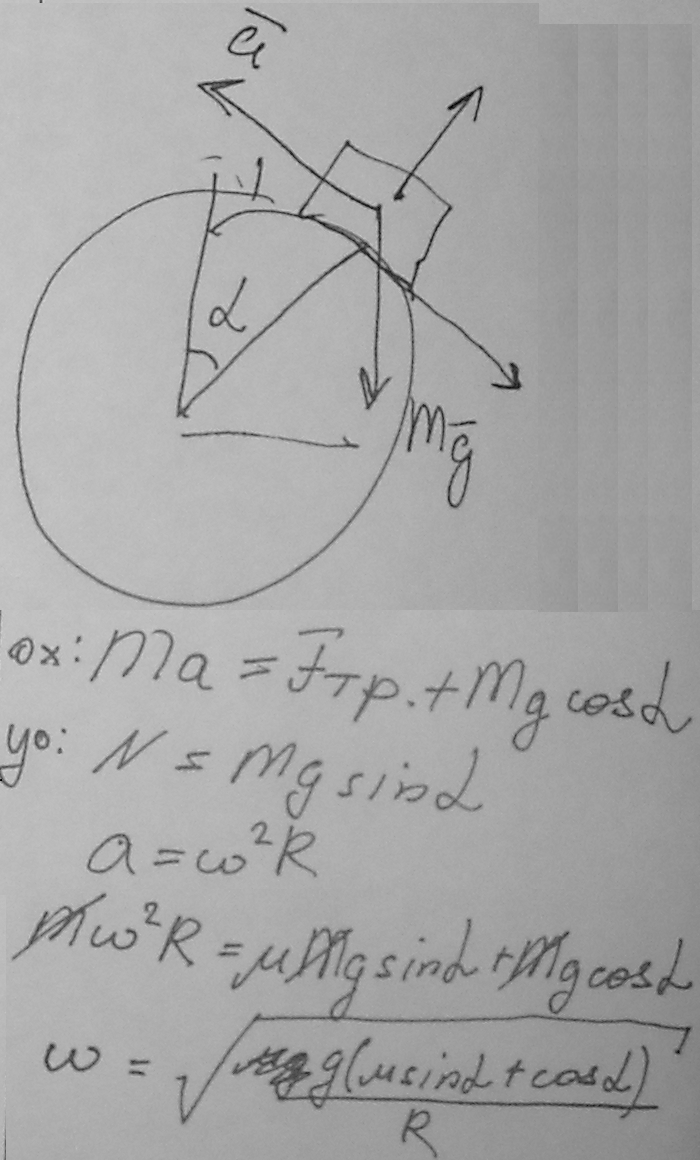 a̅
α
mg̅
ox: ma = F̅тр. + mg cosα
yo: N = mg sinα
a = ω²R
mω²R = μmg sinα + mg cosα
ω = √(g(μsinα + cosα)/R)